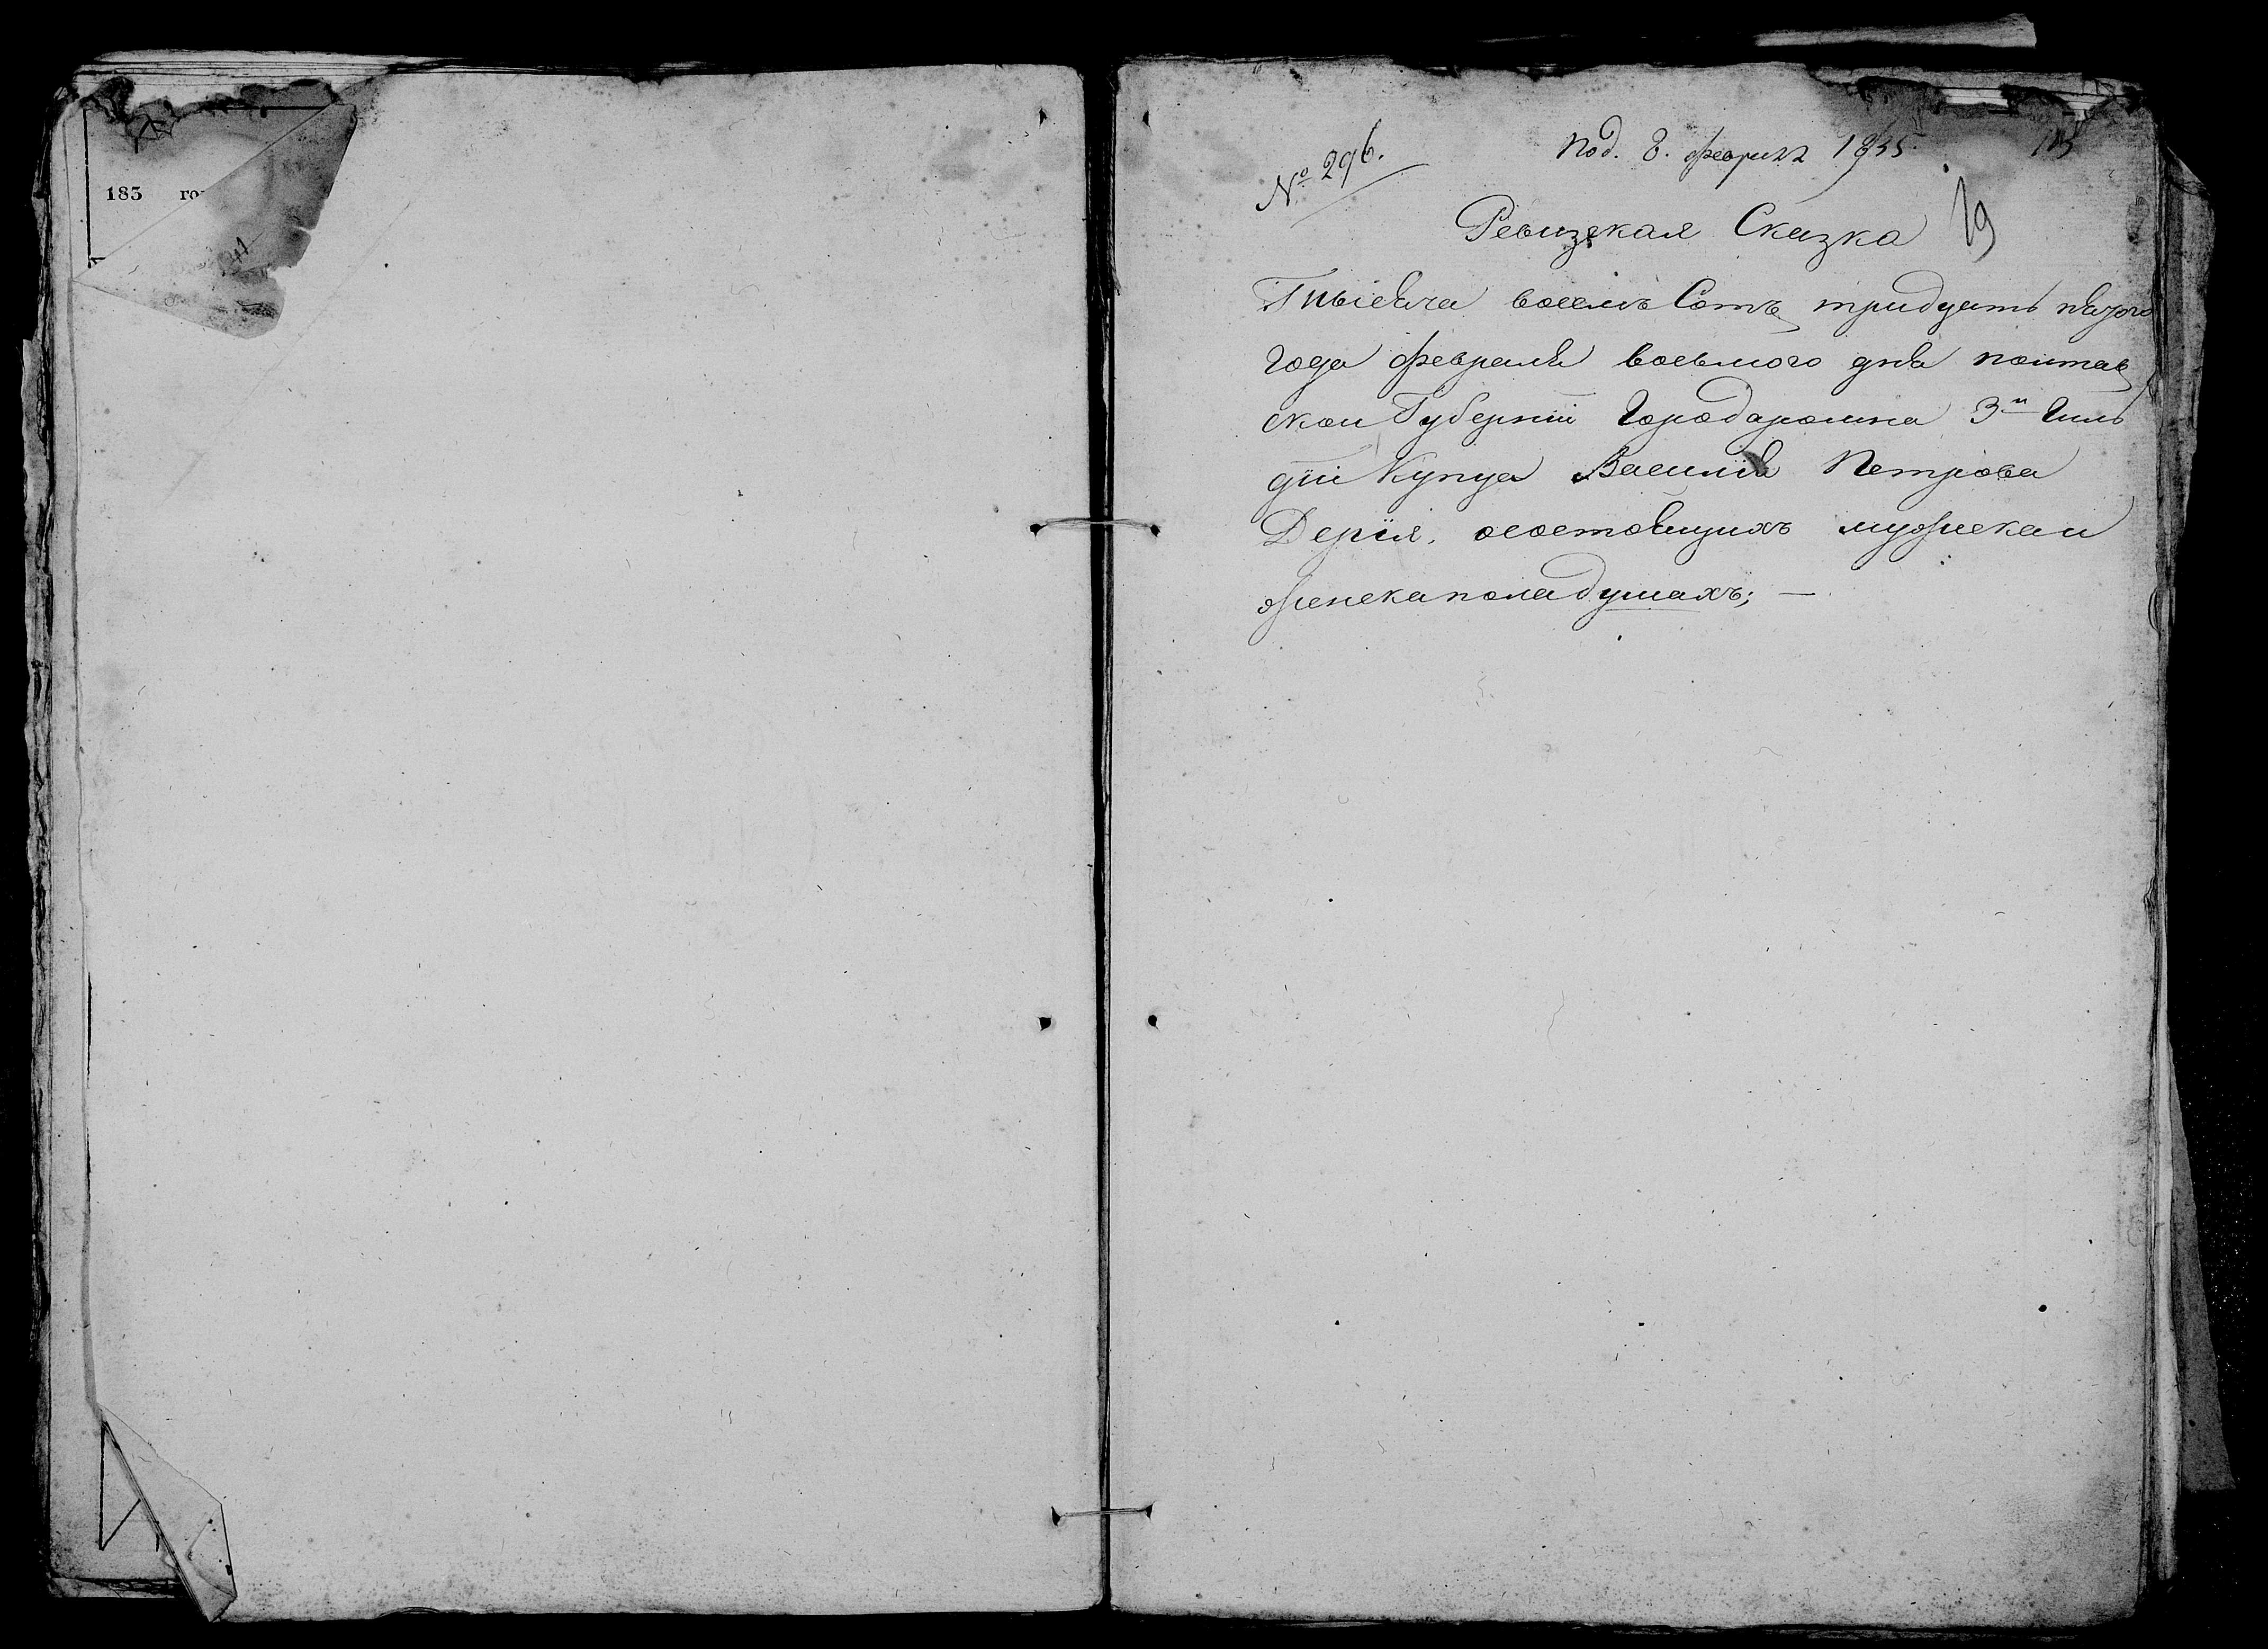 183 го
41
№ 296.
Под. 8. февраля 1835.
19
Ревизская Сказка
Тысяча восемь Сотъ тридцать пятого
года февраля восьмого дня полтав
ской Губерніи Города ромна 3й Гиль
діи Купца Василія Петрова
Дерія, осостоящихъ мужеска и
женска пола душахъ; —